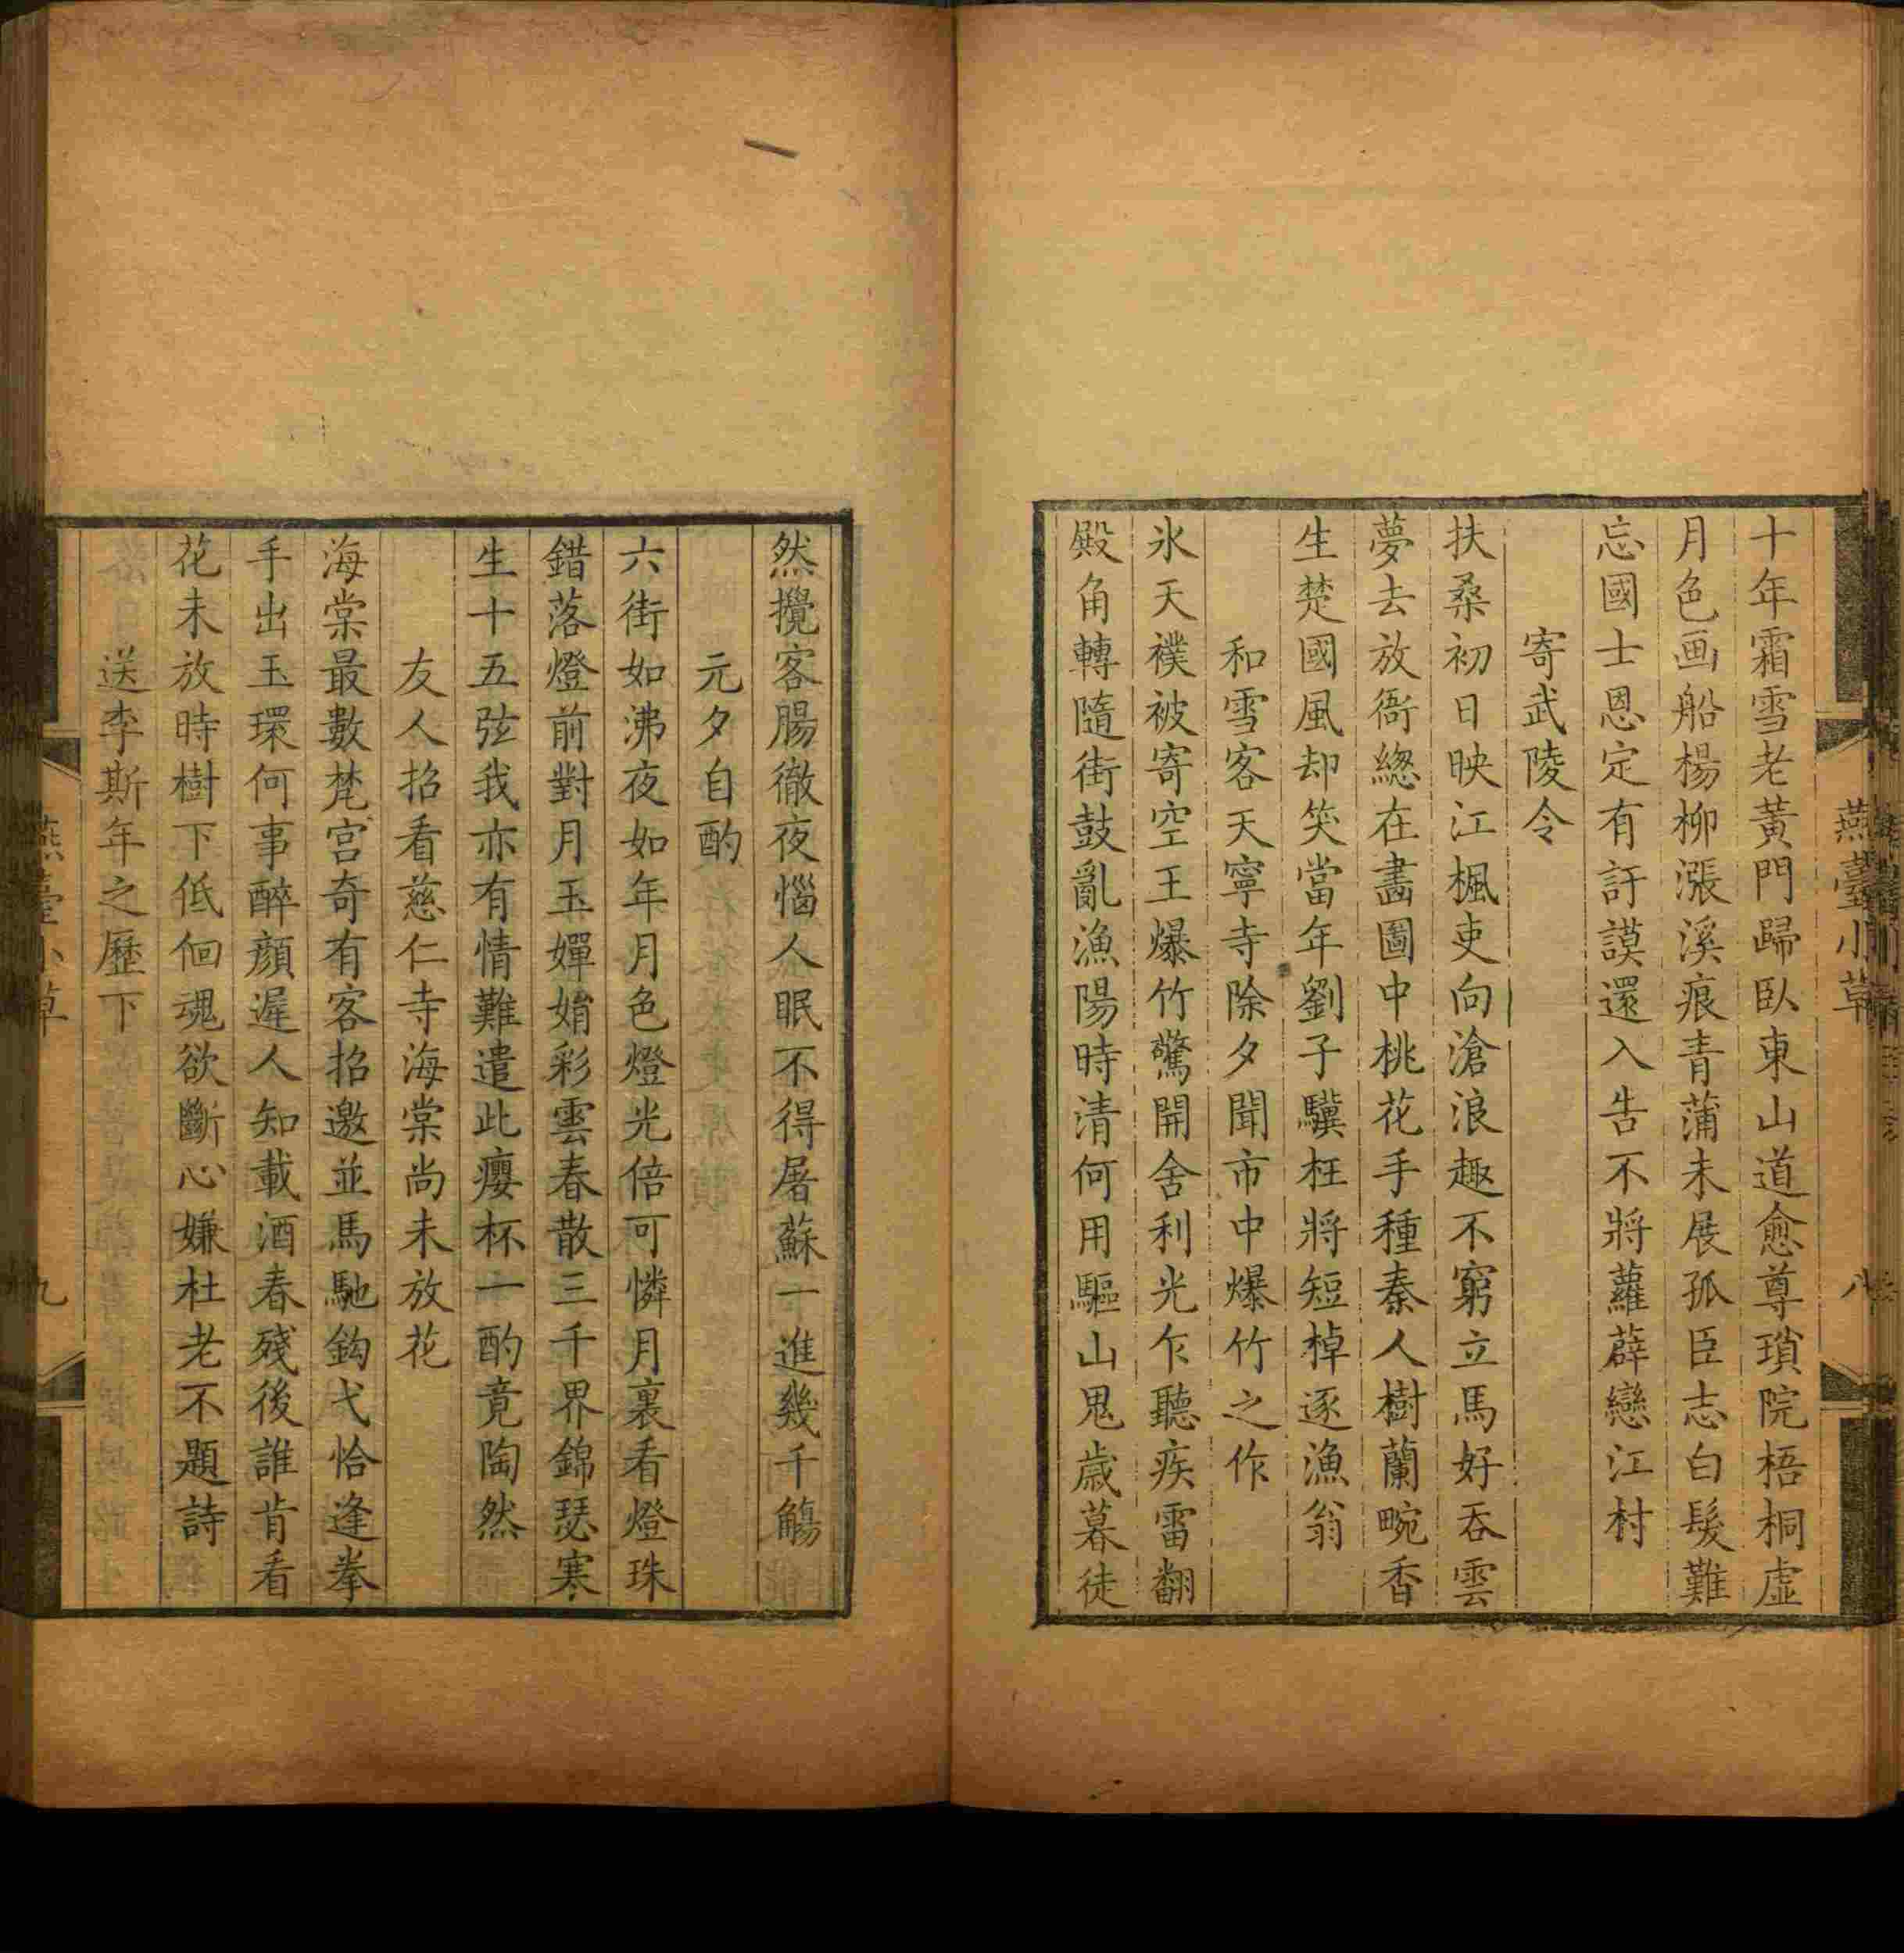 燕臺小草
八
十年霜雪老黃門歸臥東山道愈尊瑣院梧桐虛
月色画船楊柳漲溪痕青蒲未展孤臣志白髮難
忘國士恩定有訏謨還入告不將蘿薜戀江村
寄武陵令
扶桑初日映江楓吏向滄浪趣不窮立馬好吞雲
夢去放衙緫在畵圖中桃花手種秦人樹蘭畹香
生楚國風却笑當年劉子驥枉將短棹逐漁翁
和雪客天寧寺除夕聞市中爆竹之作
氷天襆被寄空王爆竹驚開舍利光乍聽疾雷翻
殿角轉隨街鼓亂漁陽時清何用驅山鬼歲暮徒
然攪客腸徹夜惱人眠不得屠蘇一進幾千觴
元夕自酌
六街如沸夜如年月色燈光倍可憐月裏看燈珠
錯落燈前對月玉嬋娟彩雲春散三千界錦瑟寒
生十五弦我亦有情難遣此癭杯一酌竟陶然
友人招看慈仁寺海棠尚未放花
海棠最數梵宮奇有客招邀並馬馳鈎弋恰逢拳
手出玉環何事醉顏遲人知載酒春殘後誰肯看
花未放時樹下低佪魂欲斷心嫌杜老不題詩
送李斯年之歷下
燕臺小草
九